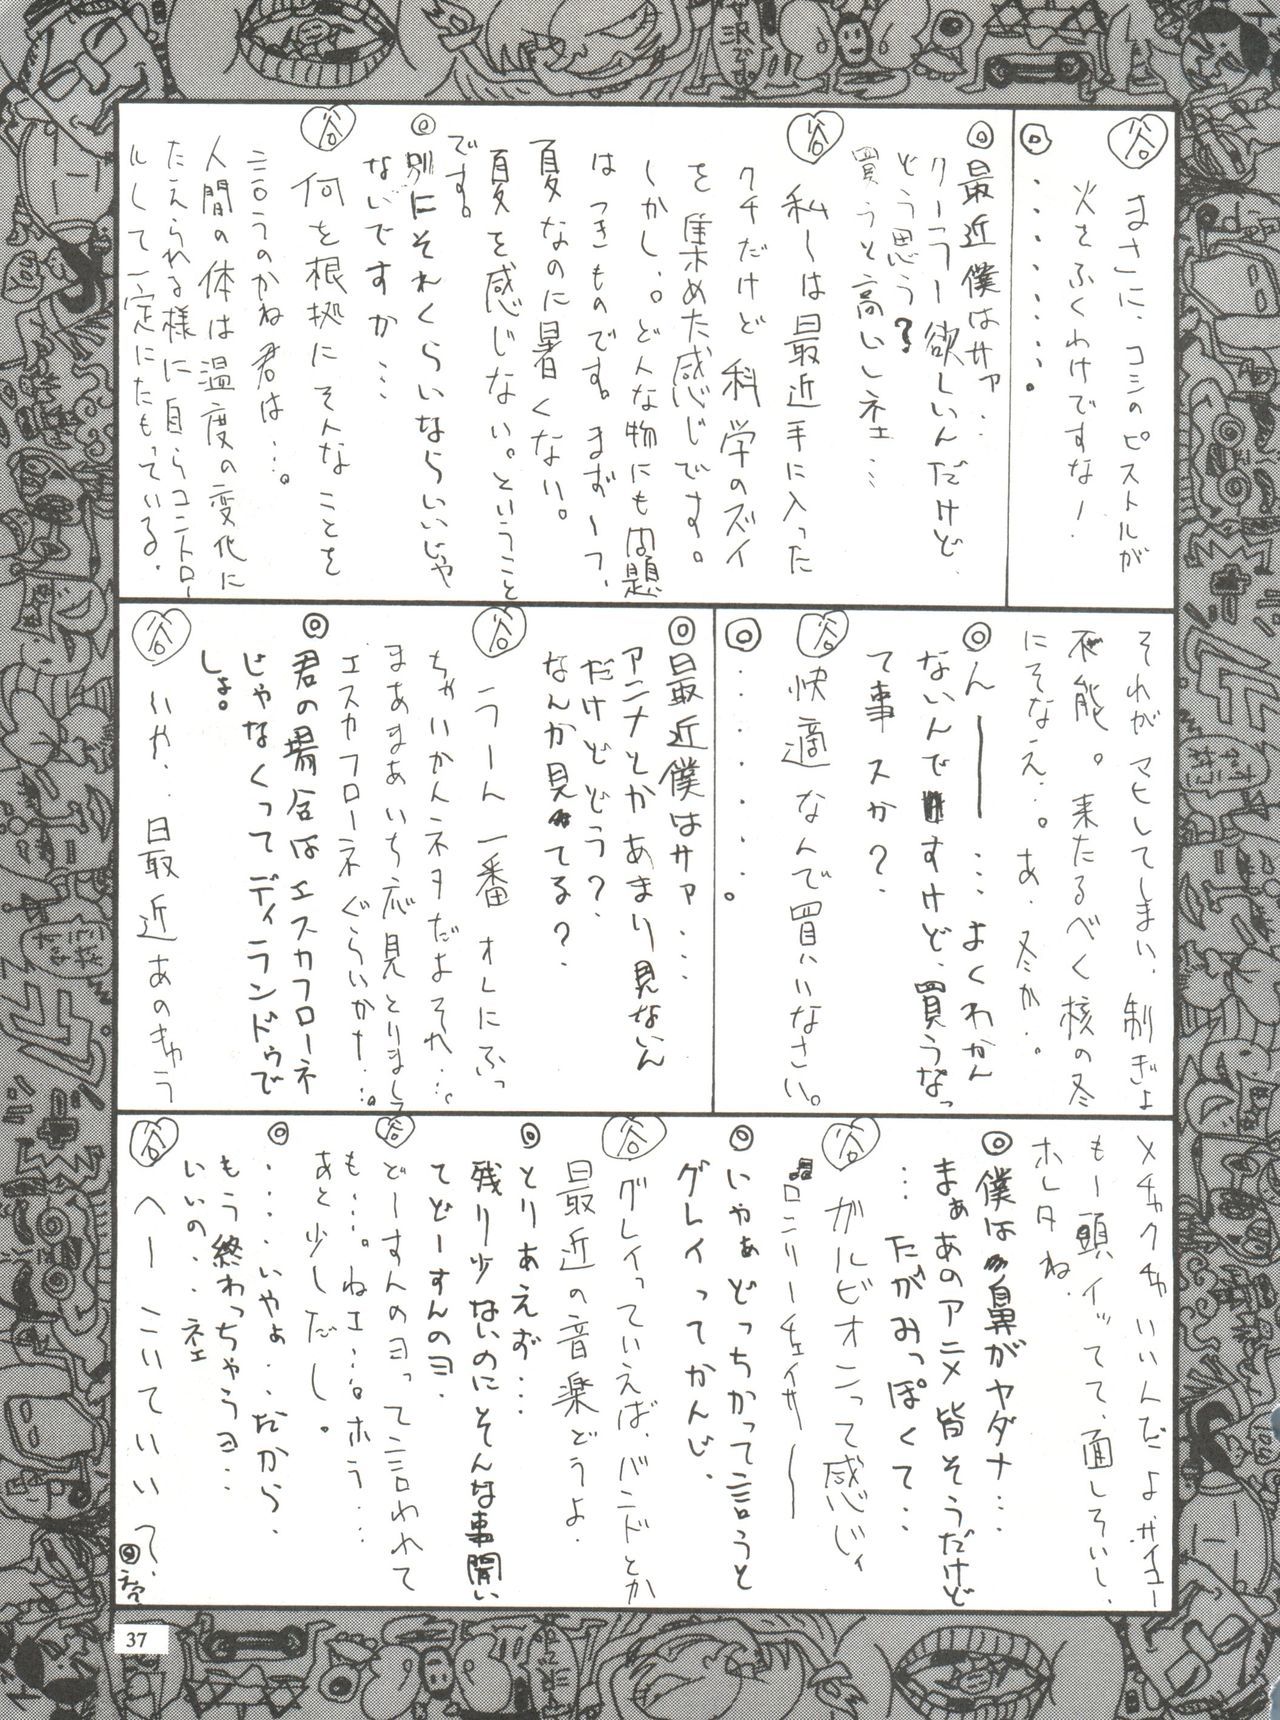 谷 まさに、コシのピストルが
火をふくわけですな!
◎ ・・・・・・・。
◎ 最近僕はサァ・・・
クーラー欲しいんだけど、
どう思う?
買うと高いしネェ・・・
谷 私〜は最近手に入った
クチだけど 科学のズイ
を集めた感じです。
しかし。どんな物にも問題
はつきものです。まず一つ、
夏なのに暑くない。
夏を感じない。ということ
です。
◎ 別にそれくらいならいいじゃ
ないですか・・・
谷 何を根拠にそんなことを
言うのかね君は・・・。
人間の体は温度の変化に
たえられる様に自らコントロー
ルして一定にたもっている。
それがマヒしてしまい、制ぎょ
不能。来たるべく核の冬
にそなえ・・。あ、冬か・。
◎ んーー・・・よくわかん
ないんですけど、買うなっ
て事スか?
谷 快適なんで買いなさい。
◎ ・・・・・・。
◎ 最近僕はサァ・・・
アニメとかあまり見ないん
だけどどう?
なんか見てる?
谷 うーん一番オレにふっ
ちゃいかんネタだよそれ・・・。
まああまあいち応見とりまして
エスカフローネぐらいかナ・・。
◎ 君の場合はエスカフローネ
じゃなくってディランドゥで
しょ。
谷 いや・・最近あのきゅう
メチャクチャいいんだよサイコー
もー頭イッてて、面しろいし、
ホレタね。
◎ 僕は鼻がヤダナ・・・
まぁあのアニメ皆そうだけど
・・・たがみっぽくて・・
谷 ガルビオンって感じィ
♫ロンリーチェイサー〜
◎ いやぁどっちかって言うと
グレイってかんじ、
谷 グレイっていえば、バンドとか
最近の音楽どうよ。
◎ とりあえず・・・
残り少ないのにそんな事聞い
てどーすんのヨ。
谷 どーすんのヨって言われて
も・・・。ねェ・・・。ホラ・・・
あと少しだし。
◎ ・・・・いやょ・・だから、
もう終わっちゃうヨ・・
いいの・・ネェ
谷 へーこいていい?
37